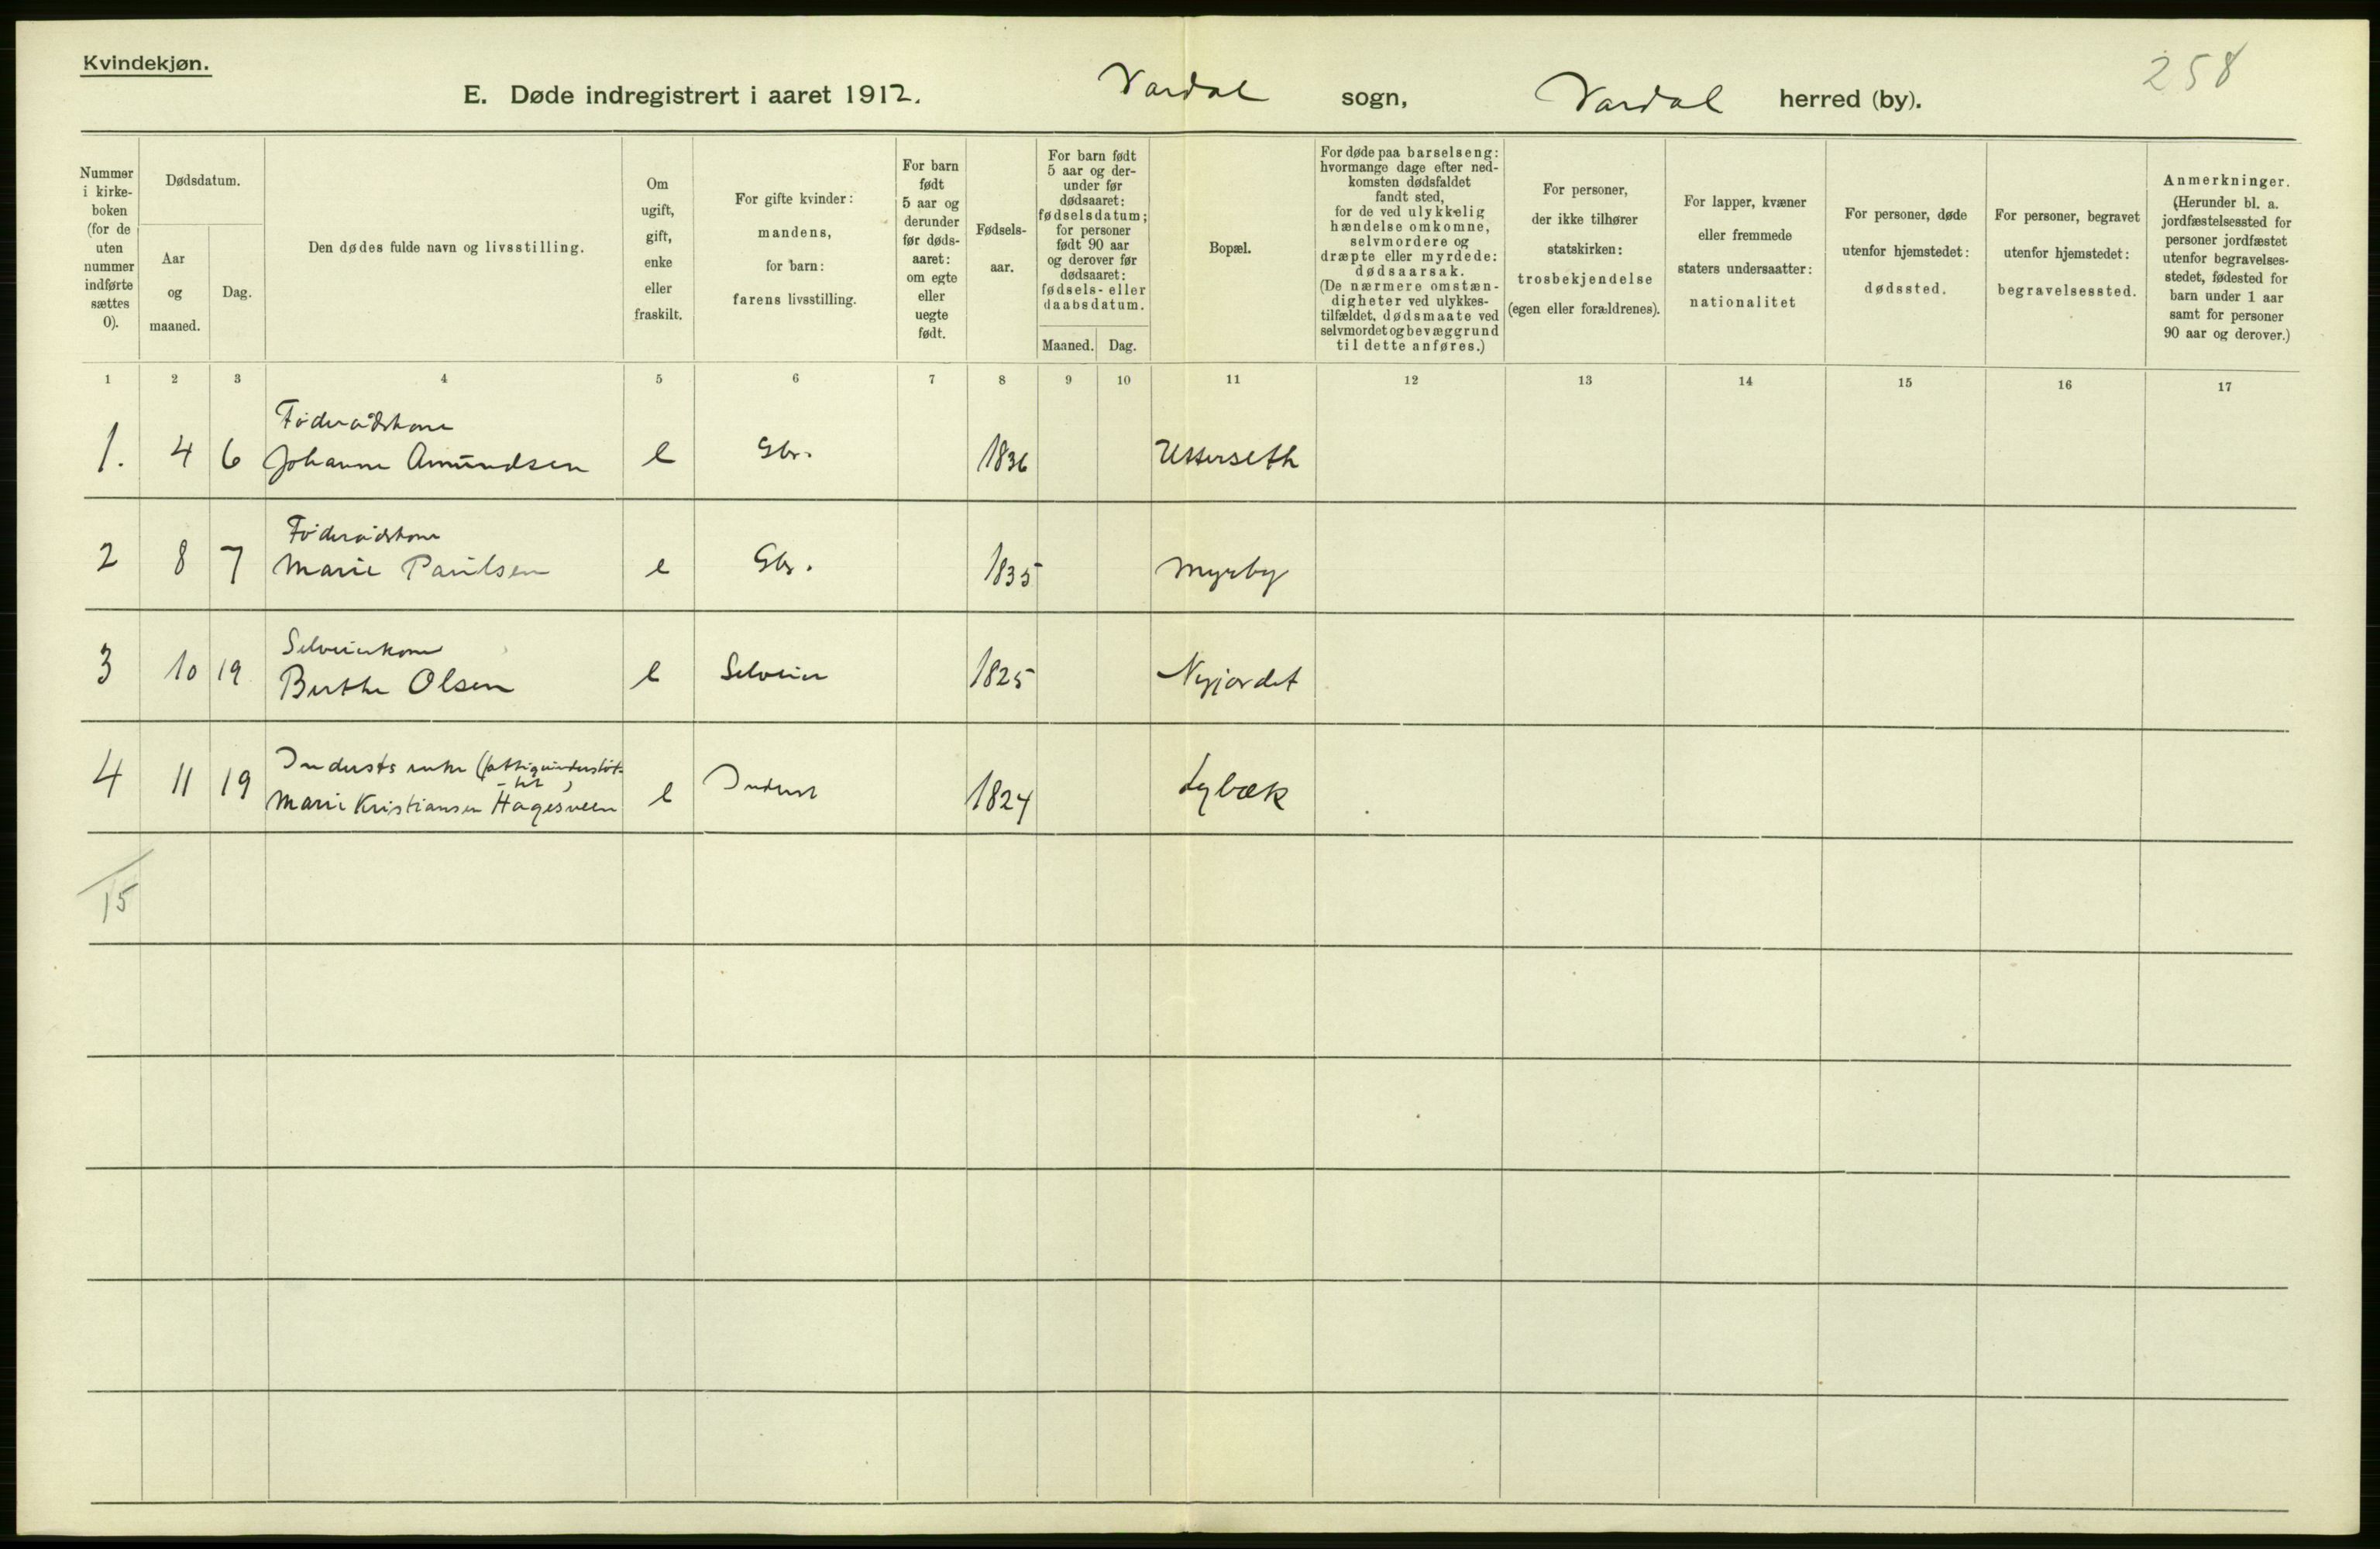 Kvindekjøn.
258
E. Døde indregistrert i aaret 1912. Vardal sogn, Vardal herred (by).
Nummer
i kirke-
boken
(for de
uten
nummer
indførte
sættes
0).
Dødsdatum.
Aar
og
maaned.
Dag.
Den dødes fulde navn og livsstilling.
Om
ugift,
gift,
enke
eller
fraskilt.
For gifte kvinder:
mandens,
for barn:
farens livsstilling.
For barn
født
5 aar og
derunder
før døds-
aaret:
om egte
eller
uegte
født.
Fødsels-
aar.
For barn født
5 aar og der-
under før
dødsaaret:
fødselsdatum;
for personer
født 90 aar
og derover før
dødsaaret:
fødsels- eller
daabsdatum.
Maaned. Dag.
Bopæl.
For døde paa barselseng:
hvormange dage efter ned-
komsten dødsfaldet
fandt sted,
for de ved ulykkelig
hændelse omkomne,
selvmordere og
dræpte eller myrdede:
dødsaarsak.
(De nærmere omstæn-
digheter ved ulykkes-
tilfældet, dødsmaate ved
selvmordet og bevæggrund
til dette anføres.)
For personer,
der ikke tilhører
statskirken:
trosbekjendelse
(egen eller forældrenes).
For lapper, kvæner
eller fremmede
staters undersaatter:
nationalitet
For personer, døde
utenfor hjemstedet:
dødssted.
For personer, begravet
utenfor hjemstedet:
begravelsessted.
Anmerkninger.
(Herunder bl. a.
jordfæstelsessted for
personer jordfæstet
utenfor begravelses-
stedet, fødested for
barn under 1 aar
samt for personer
90 aar og derover.)
1 2 3 4 5 6 7 8 9 10 11 12 13 14 15 16 17
Føderaadskone
1. 4 6 Johanne Amundsen e Gbr. 1836 Utterseth
Føderaadskone
2 8 7 Marie Paulsen e Gbr. 1835 Myrby
Selveierkone
3 10 19 Berthe Olsen e Selveier 1825 Nyjordet
Indersts enke (fattigunderstøt-
-tet)
4 11 19 Marie Kristiansen Hagesveen e Inderst 1824 Lybæk
15